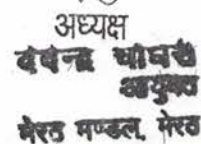 अध्यक्ष
देवेन्द्र चौधरी
आयुक्त
मेरठ मण्डल, मेरठ